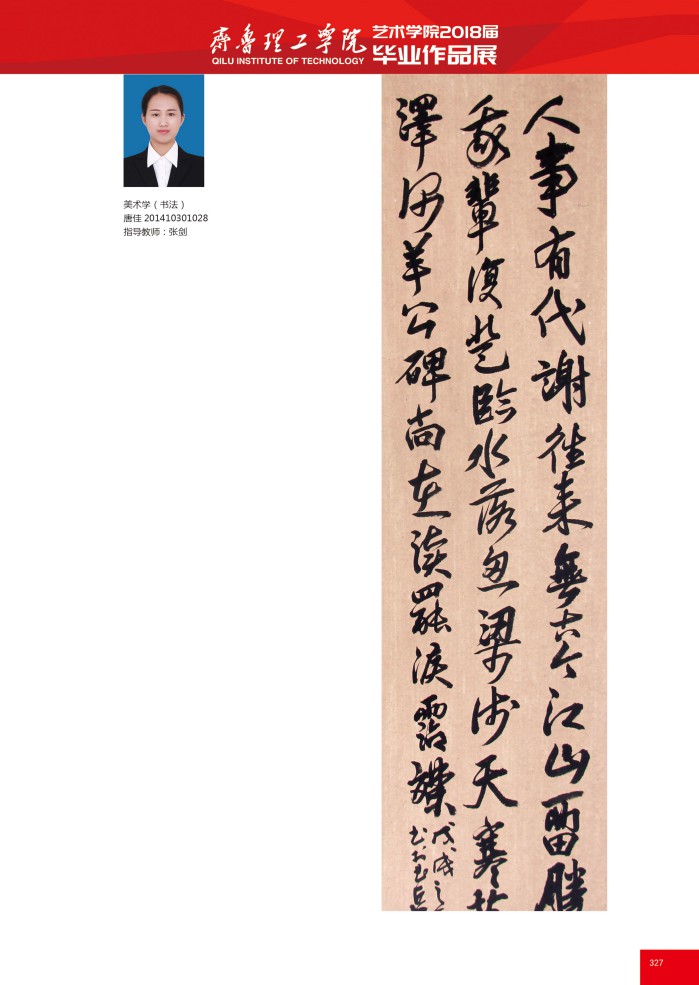 齊魯理工學院
QILU INSTITUTE OF TECHNOLOGY
艺术学院2018届
毕业作品展
美术学（书法）
唐佳 201410301028
指导教师：张剑
人事有代謝往来無古今江山留勝
我輩復登臨水落魚梁浅天寒
澤深羊公碑尚在讀罷淚霑襟
戊戌之
327